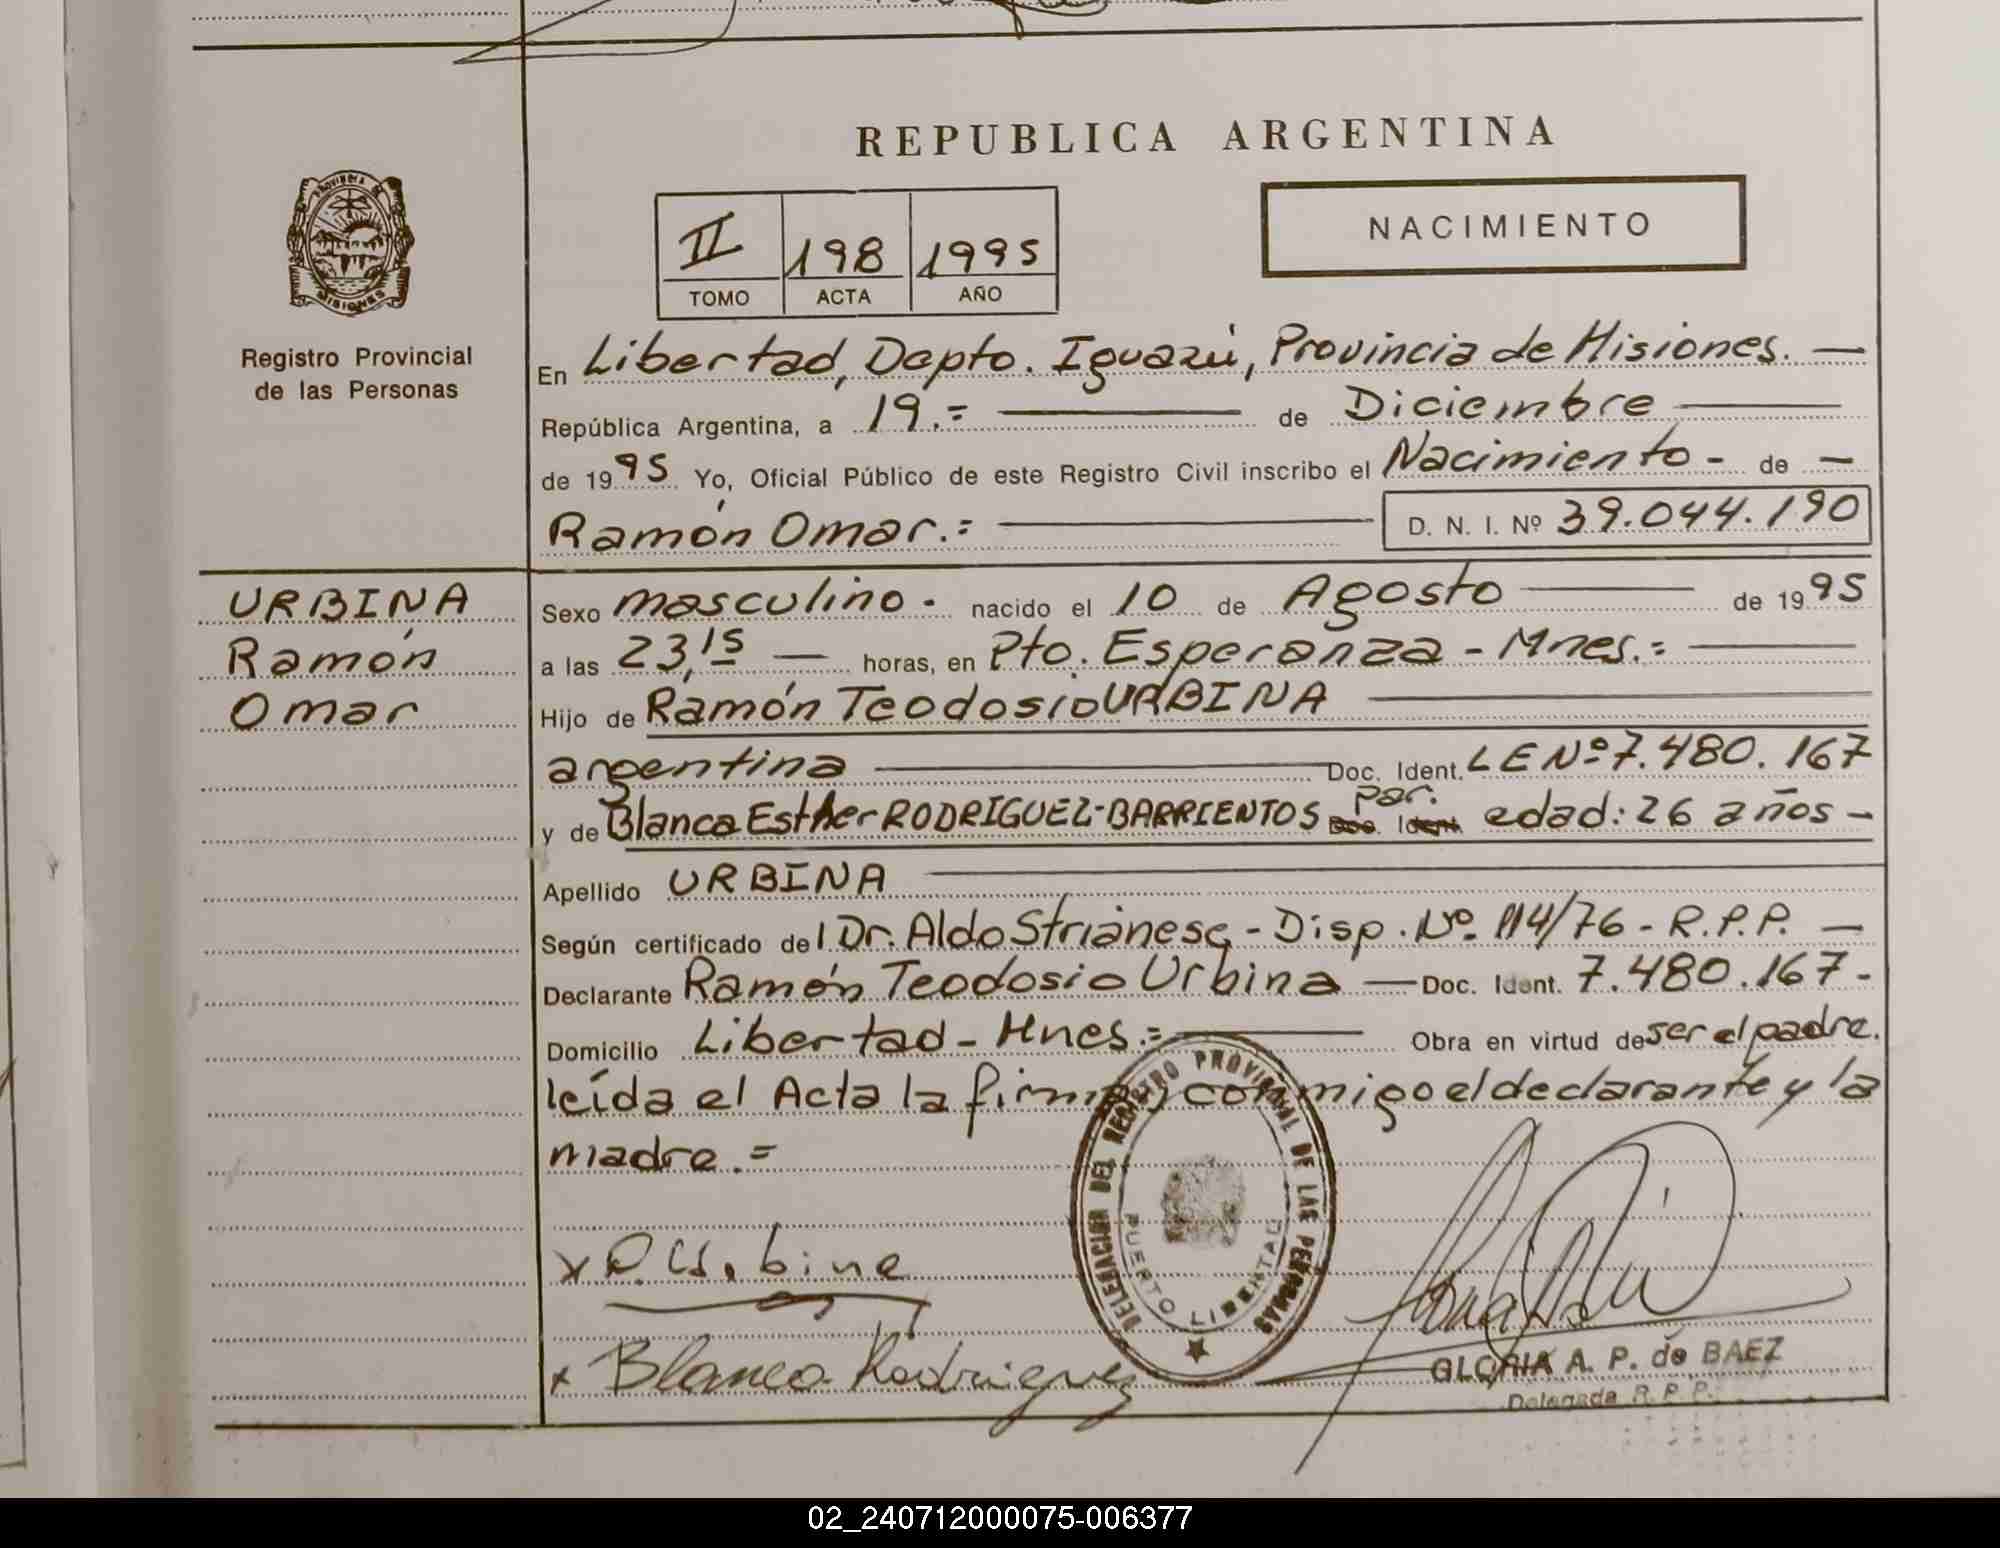 REPUBLICA ARGENTINA
PROVINCIA DE
MISIONES
Registro Provincial
de las Personas
II 198 1995
TOMO ACTA AÑO
NACIMIENTO
En Libertad, Depto. Iguazú, Provincia de Misiones. —
República Argentina, a 19.= — de Diciembre —
de 1995 Yo, Oficial Público de este Registro Civil inscribo el Nacimiento - de —
Ramón Omar.= — D. N. I. Nº 39.044.190
URBINA
Ramón
Omar
Sexo masculino - nacido el 10 de Agosto — de 1995
a las 23,15 — horas, en Pto. Esperanza - Mnes.= —
Hijo de Ramón Teodosio URBINA —
argentina — Doc. Ident. LE Nº 7.480.167
y de Blanca Esther RODRIGUEZ-BARRIENTOS par. Doc. Ident. edad: 26 años -
Apellido URBINA —
Según certificado del Dr. Aldo Strianese - Disp. Nº 114/76 - R.P.P. —
Declarante Ramón Teodosio Urbina — Doc. Ident. 7.480.167-
Domicilio Libertad - Mnes.= — Obra en virtud de ser el padre.
leída el Acta la firman conmigo el declarante y la
madre.=
DELEGACION DEL REGISTRO PROVINCIAL DE LAS PERSONAS
PUERTO LIBERTAD
x R. Urbina
x Blanca Rodriguez
GLORIA A. P. de BAEZ
Delegada R. P. P.
02_240712000075-006377